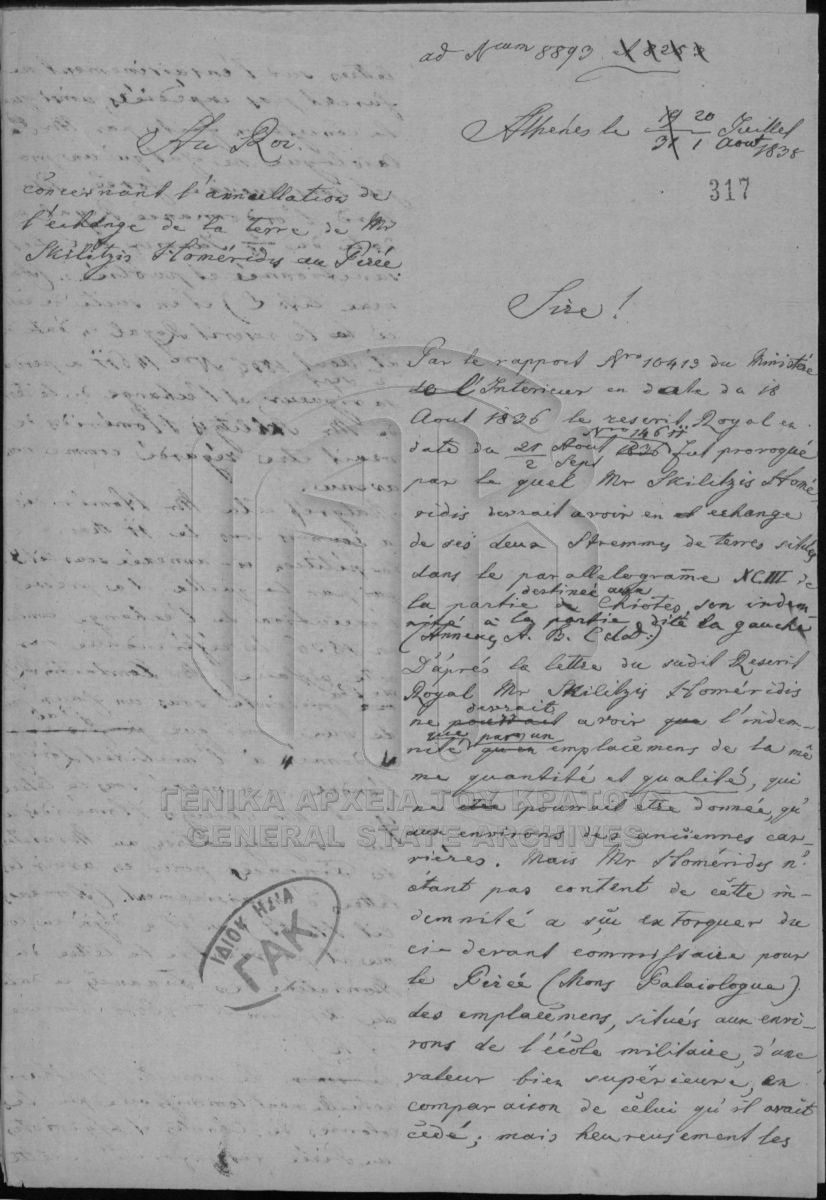 ad Num 8893
Athénes le 19 20 Juillet
31 1 Aout 1838
317
Au Roi.
concernant l'annullation de
l'echange de la terre de Mr
Skilitzis Homéridis au Pirée
Sire!
Par le rapport Nro 10413 du Ministére
de l'Interieur en date du 18
Aout 1836 le rescrit Royal en
date du 21 Aout 1836 fut provoqué
2 Sept
par le quel Mr Skilitzis Homé-
ridis devrait avoir en echange
de ses deux Stremmes de terres situés
dans le parallelograme XCIII de
la partie destinée aux Chiotes, son indem
nité à la partie dité la gauche
(Annexes A. B. C et D.)
D'áprés la lettre du sudit Rescrit
Royal Mr Skilitzis Homéridis
ne devrait avoir l'indem-
nité que par un emplacemens de la mê
me quantité et qualité, qui
ne pourrait etre donnée, qu'
aux environs des anciennes car-
rières. Mais Mr Homéridis n'
étant pas content de cette in-
demnité a sçu extorquer du
ci-devant commissaire pour
le Pirée (Mons Palaiologue)
des emplacemens, situés aux envi-
rons de l'école militaire, d'une
valeur bien supérieure, en
comparaison de celui qu'il avait
cédé; mais heureusement les
ΓΕΝΙΚΑ ΑΡΧΕΙΑ ΤΟΥ ΚΡΑΤΟΥΣ
GENERAL STATE ARCHIVES
ΓΑΚ